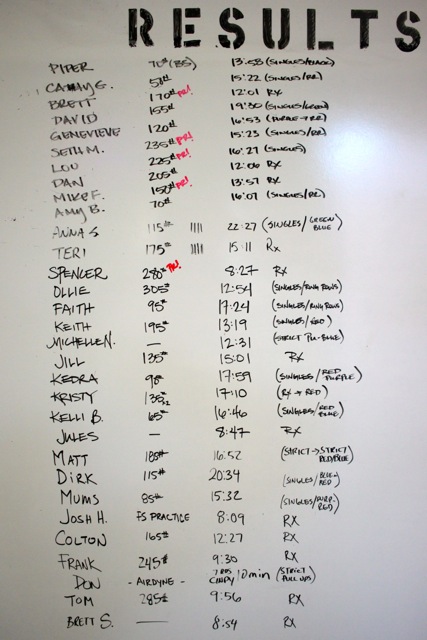 RESULTS
PIPER 70# (BS) 13:58 (SINGLES/BLACK)
CATHY G. 50# 15:22 (SINGLES/RR)
BRETT 170# PR! 12:01 RX
DAVID 155# 19:30 (SINGLES/GREEN)
GENEVIEVE 120# 16:53 (PURPLE → RR)
SETH M. 235# PR! 15:23 (SINGLES/RR)
LOU 225# PR! 16:27 (SINGLES)
DAN 205# 12:06 RX
MIKE F. 150# PR! 13:57 RX
AMY B. 70# 16:07 (SINGLES/RR)
ANNA S 115# |||| 22:27 (SINGLES/GREEN BLUE)
TERI 175# |||| 15:11 RX
SPENCER 280# PR! 8:27 RX
OLLIE 305# 12:54 (SINGLES/RING ROWS)
FAITH 95# 17:24 (SINGLES/RING ROWS)
KEITH 195# 13:19 (SINGLES/RED)
MICHELLE N. — 12:31 (STRICT PU-BLUE)
JILL 135# 15:01 RX
KEDRA 90# 17:59 (SINGLES/RED PURPLE)
KRISTY 135# x2 17:10 (RX → RED)
KELLI B. 65# 16:46 (SINGLES/RED BLUE)
JULES — 8:47 RX
MATT 185# 16:52 (STRICT → STRICT RED/BLUE)
DIRK 115# 20:34 (SINGLES/BLUE RED)
MUMS 85# 15:32 (SINGLES/PURP. RED)
JOSH H. FS PRACTICE 8:09 RX
COLTON 165# 12:27 RX
FRANK 245# 9:30 RX
DON - AIRDYNE - 7 RDS CINDY 10 min (STRICT PULL UPS)
TOM 285# 9:56 RX
BRETT S. — 8:54 RX